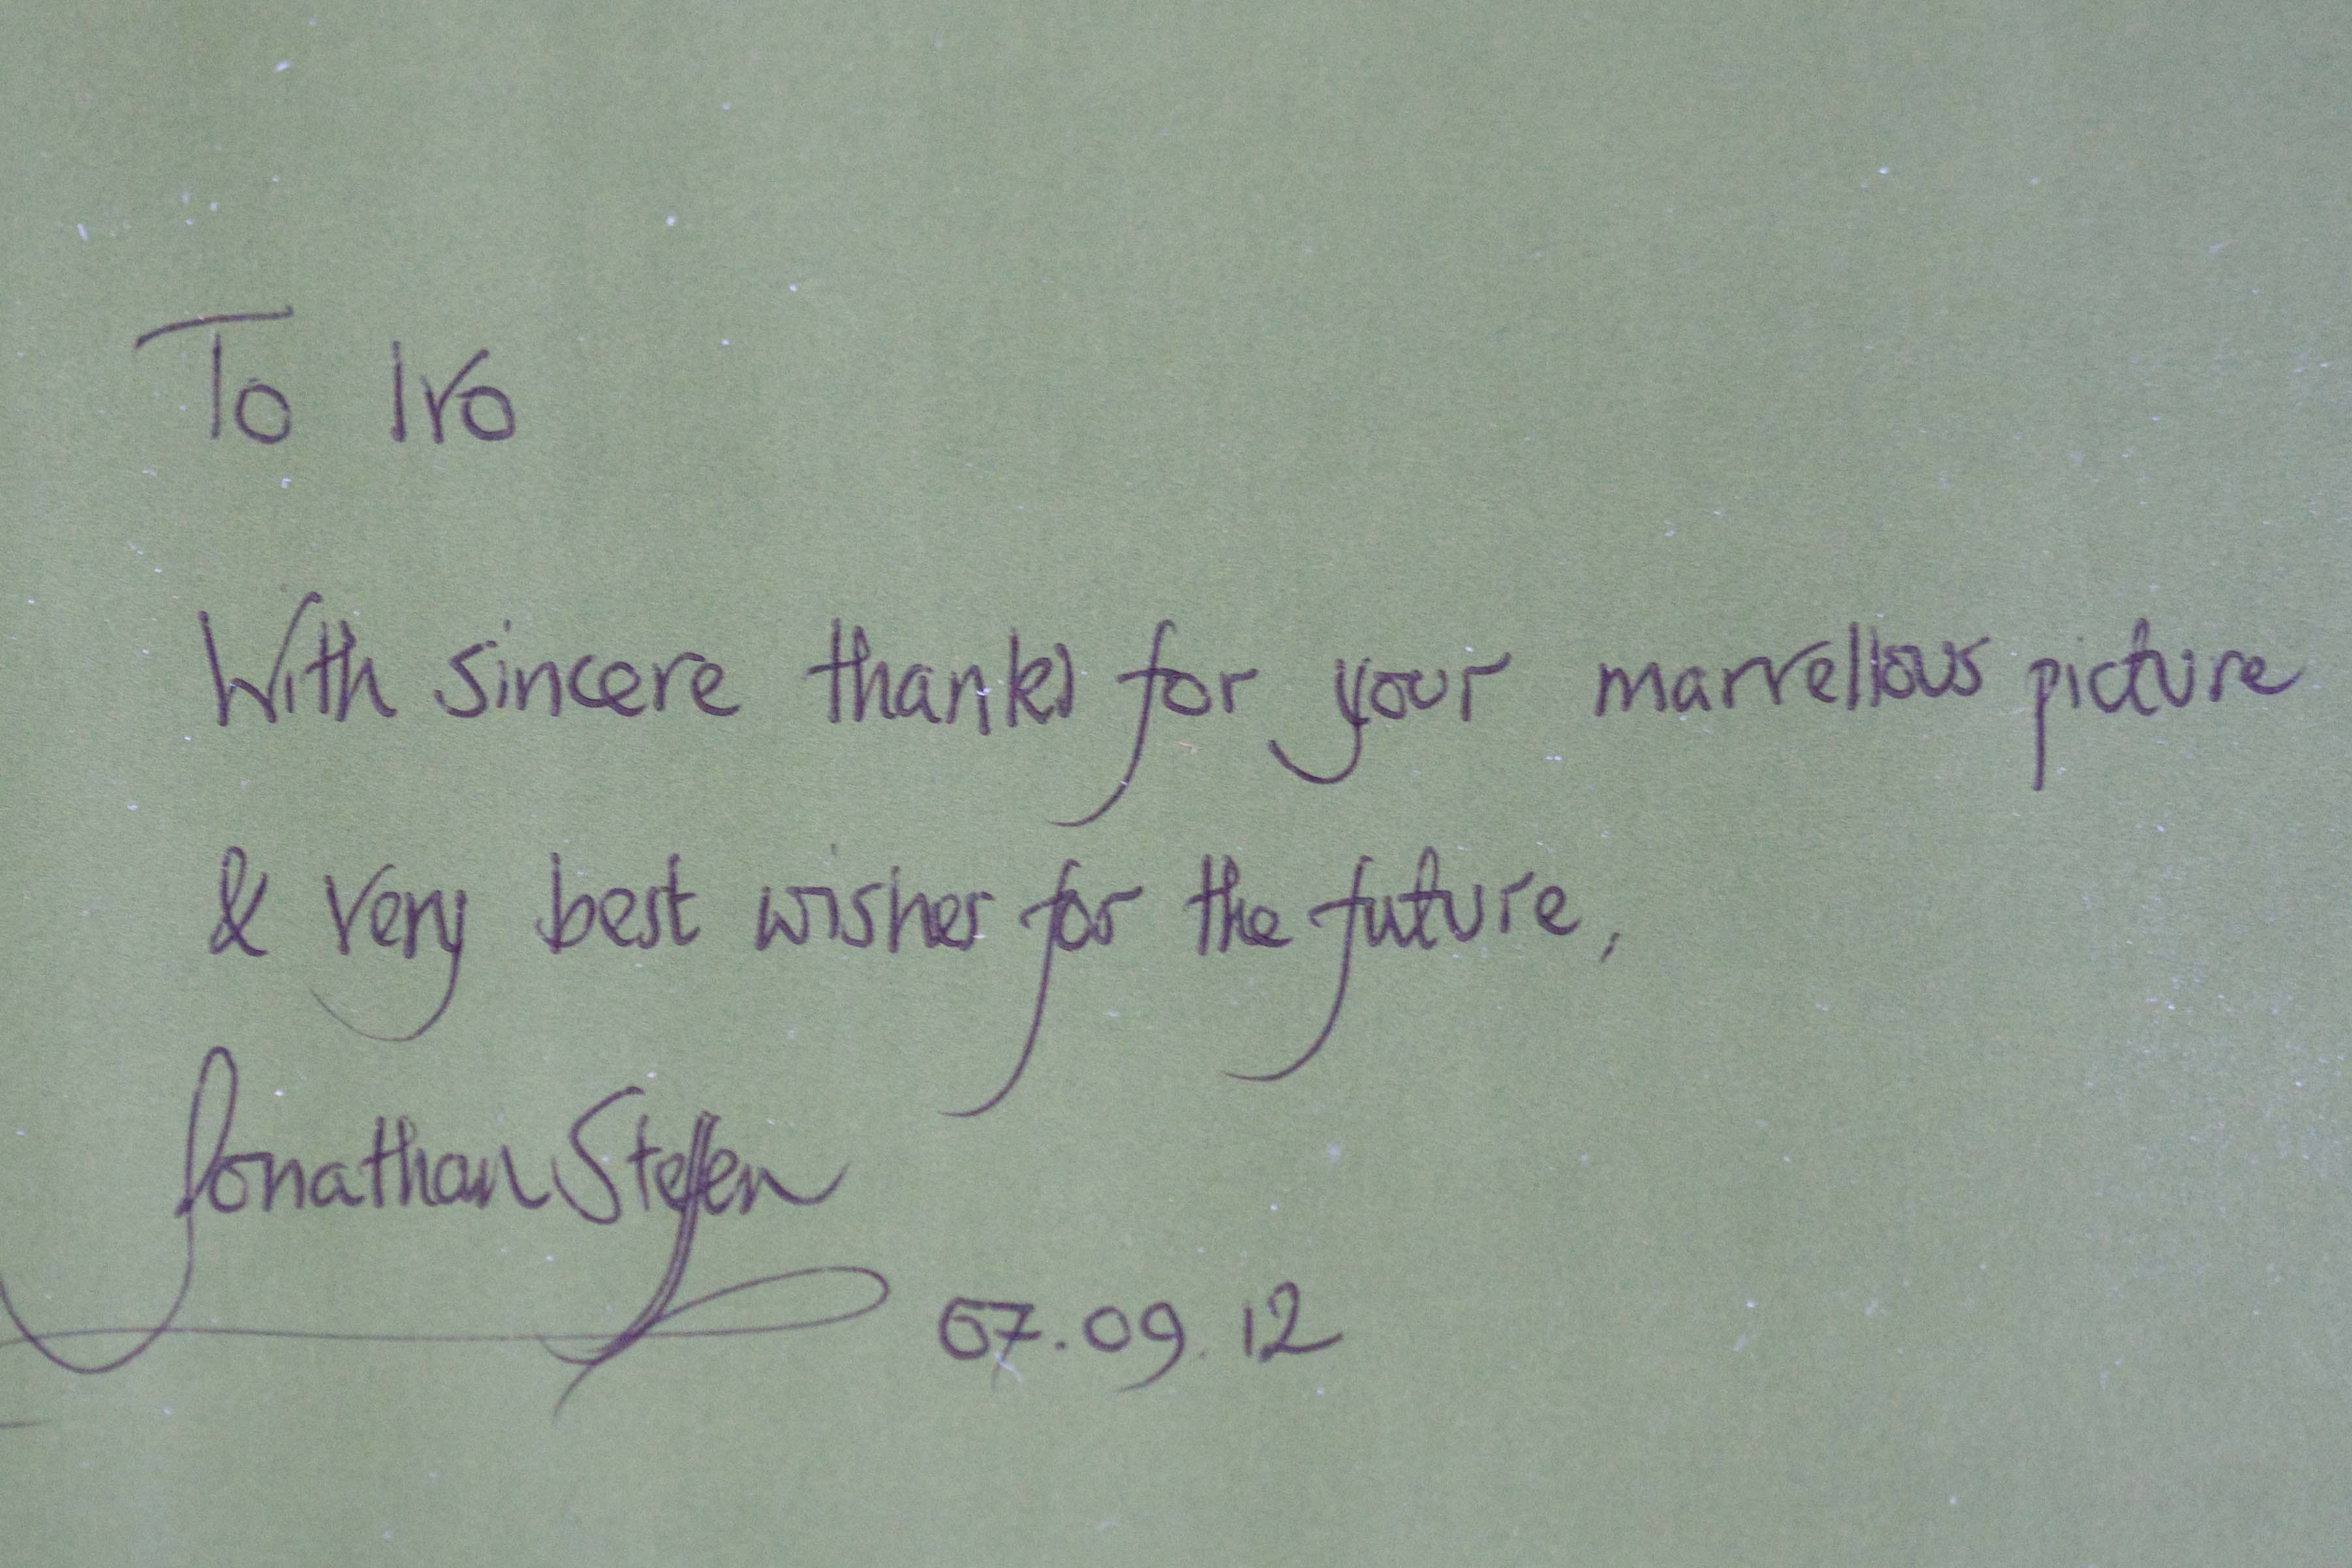 To Iro
With sincere thanks for your marvellous picture
& very best wishes for the future,
Jonathan Steffen
07.09.12